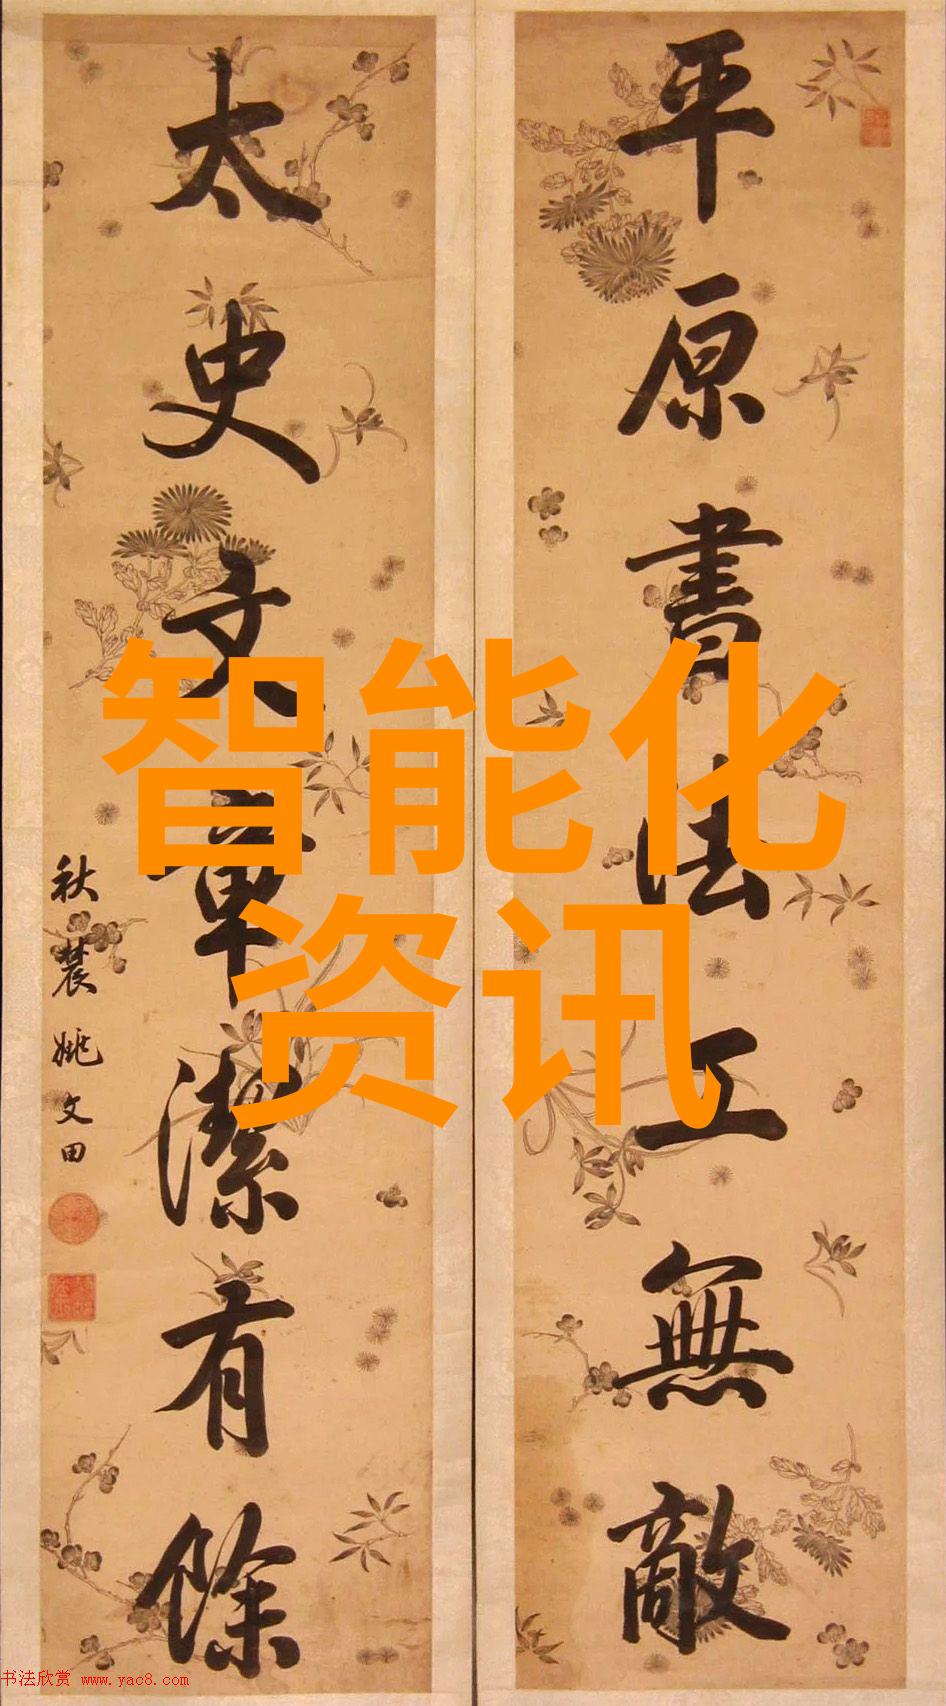 平原書法工無敵
太史文章潔有餘
秋農姚文田
智能化
资讯
书法欣赏 www.yac8.com